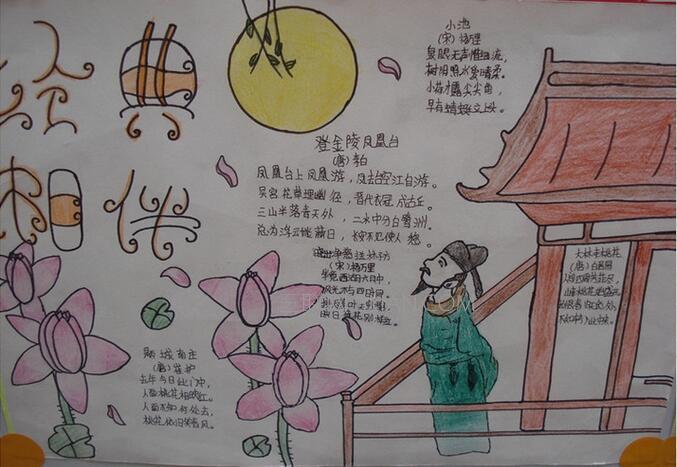 经典
相伴
小池
(宋)杨万里
泉眼无声惜细流,
树阴照水爱晴柔。
小荷才露尖尖角,
早有蜻蜓立上头。
登金陵凤凰台
(唐)李白
凤凰台上凤凰游,凤去台空江自流。
吴宫花草埋幽径,晋代衣冠成古丘。
三山半落青天外,二水中分白鹭洲。
总为浮云能蔽日,长安不见使人愁。
晓出净慈送林子方
(宋)杨万里
毕竟西湖六月中,
风光不与四时同。
接天莲叶
映日荷花别样红。
题城南庄
(唐)崔护
去年今日此门中,
人面桃花相映红。
人面不知何处去,
桃花依旧笑春风。
大林寺桃花
(唐)白居易
人间四月芳菲尽,
山寺桃花始盛开。